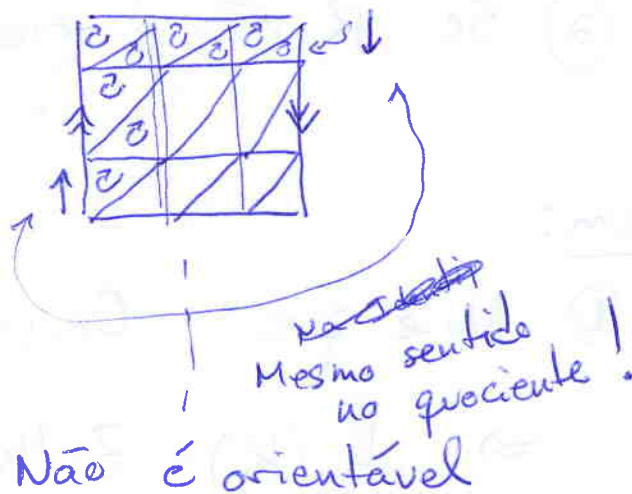 Mesmo sentido
no quociente!
Não é orientável